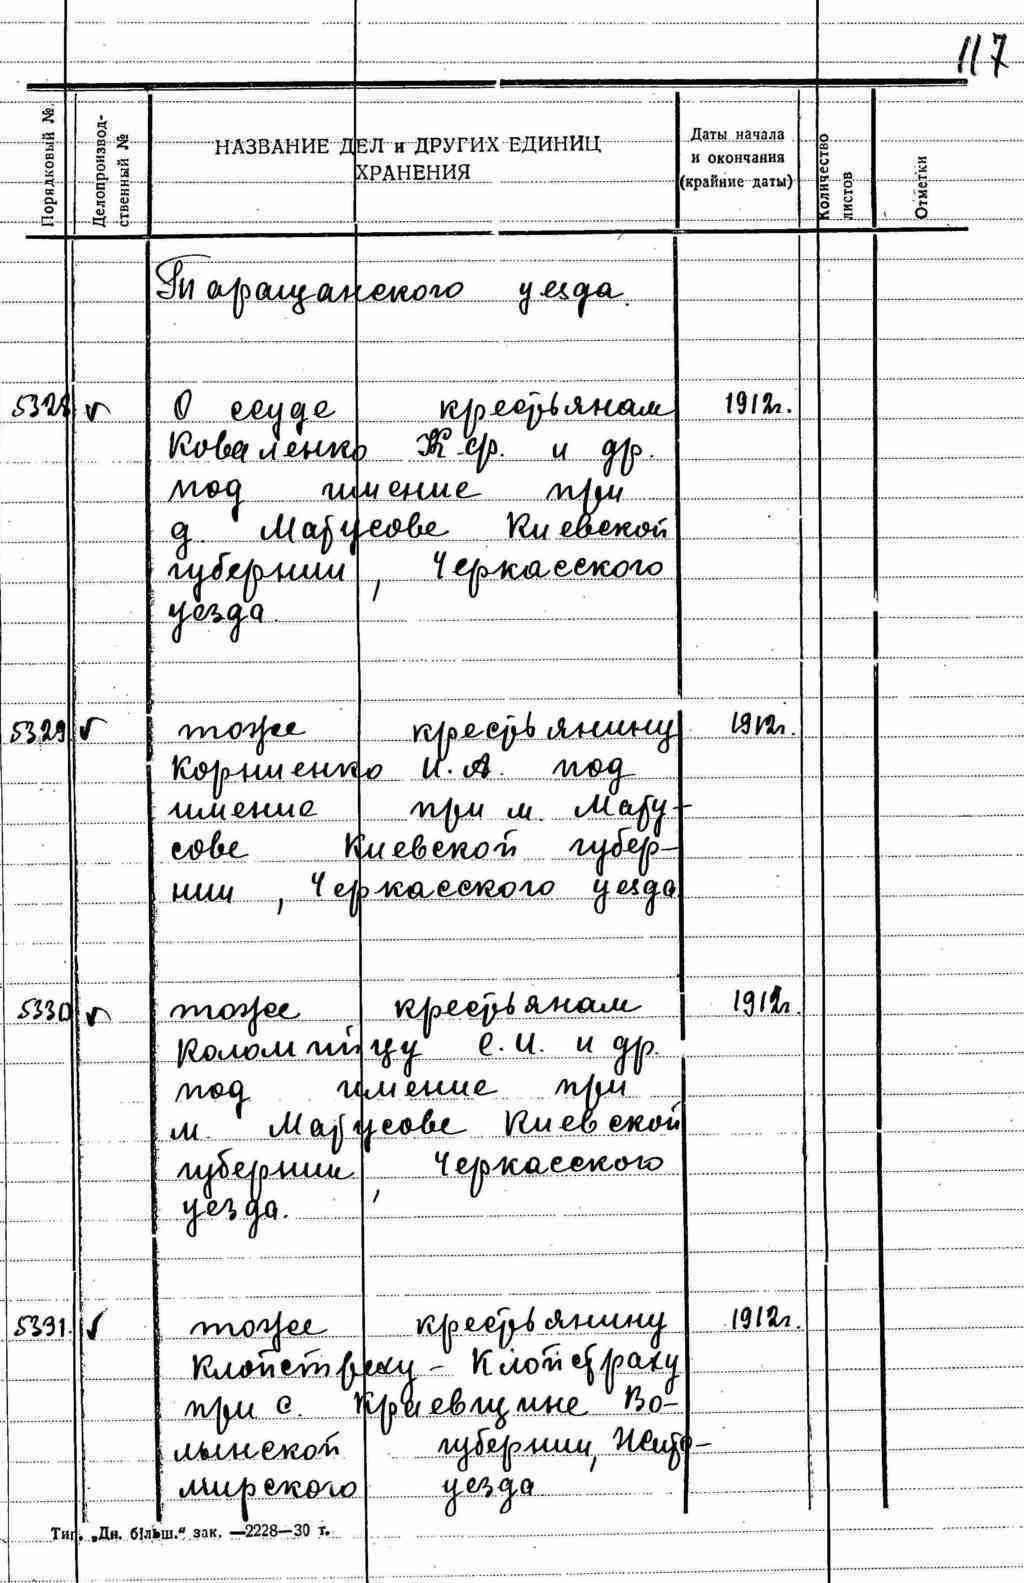 117
Порядковый №.
Делопроизвод-
ственный №
НАЗВАНИЕ ДЕЛ и ДРУГИХ ЕДИНИЦ
ХРАНЕНИЯ
Даты начала
и окончания
(крайние даты)
Количество
листов
Отметки
Таращанского уезда.
5328 v О ссуде крестьянам 1912г.
Коваленко К. Ф. и др.
под имение при
д. Матусове Киевской
губернии, Черкасского
уезда
5329 v тоже крестьянину 1912г.
Корниенко И. А. под
имение при м. Мату-
сове Киевской губер-
нии, Черкасского уезда
5330 v тоже крестьянам 1912г.
Коломийцу С. И. и др.
под имение при
м. Матусове Киевской
губернии, Черкасского
уезда.
5331. v тоже крестьянину 1912г.
Клойстраху
при с. Криевщине Во-
лынской губернии, Жито-
мирского уезда
Тип. „Дн. більш.“ зак. —2228—30 г.